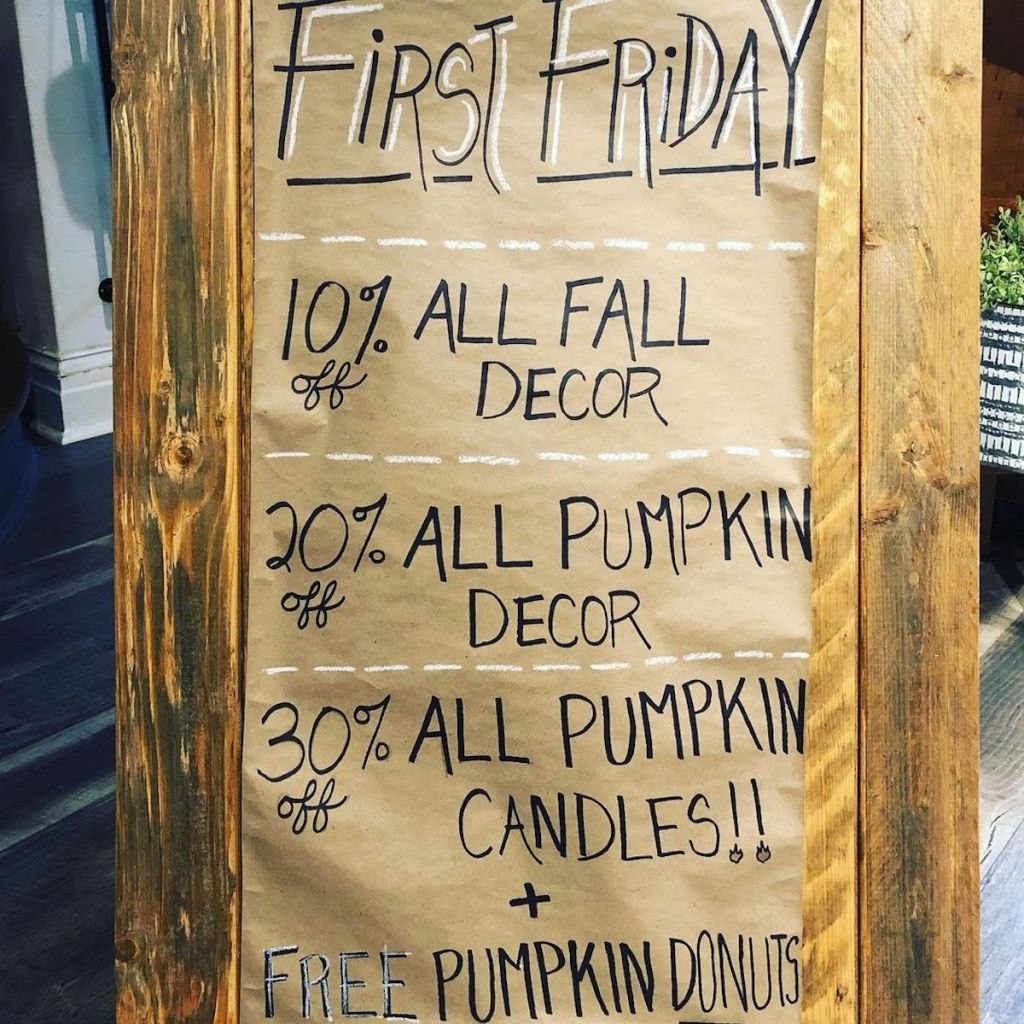 FiRST FRiDAY
10% ALL FALL
off DECOR
20% ALL PUMPKIN
off DECOR
30% ALL PUMPKIN
off CANDLES!!
+
FREE PUMPKIN DONUTS